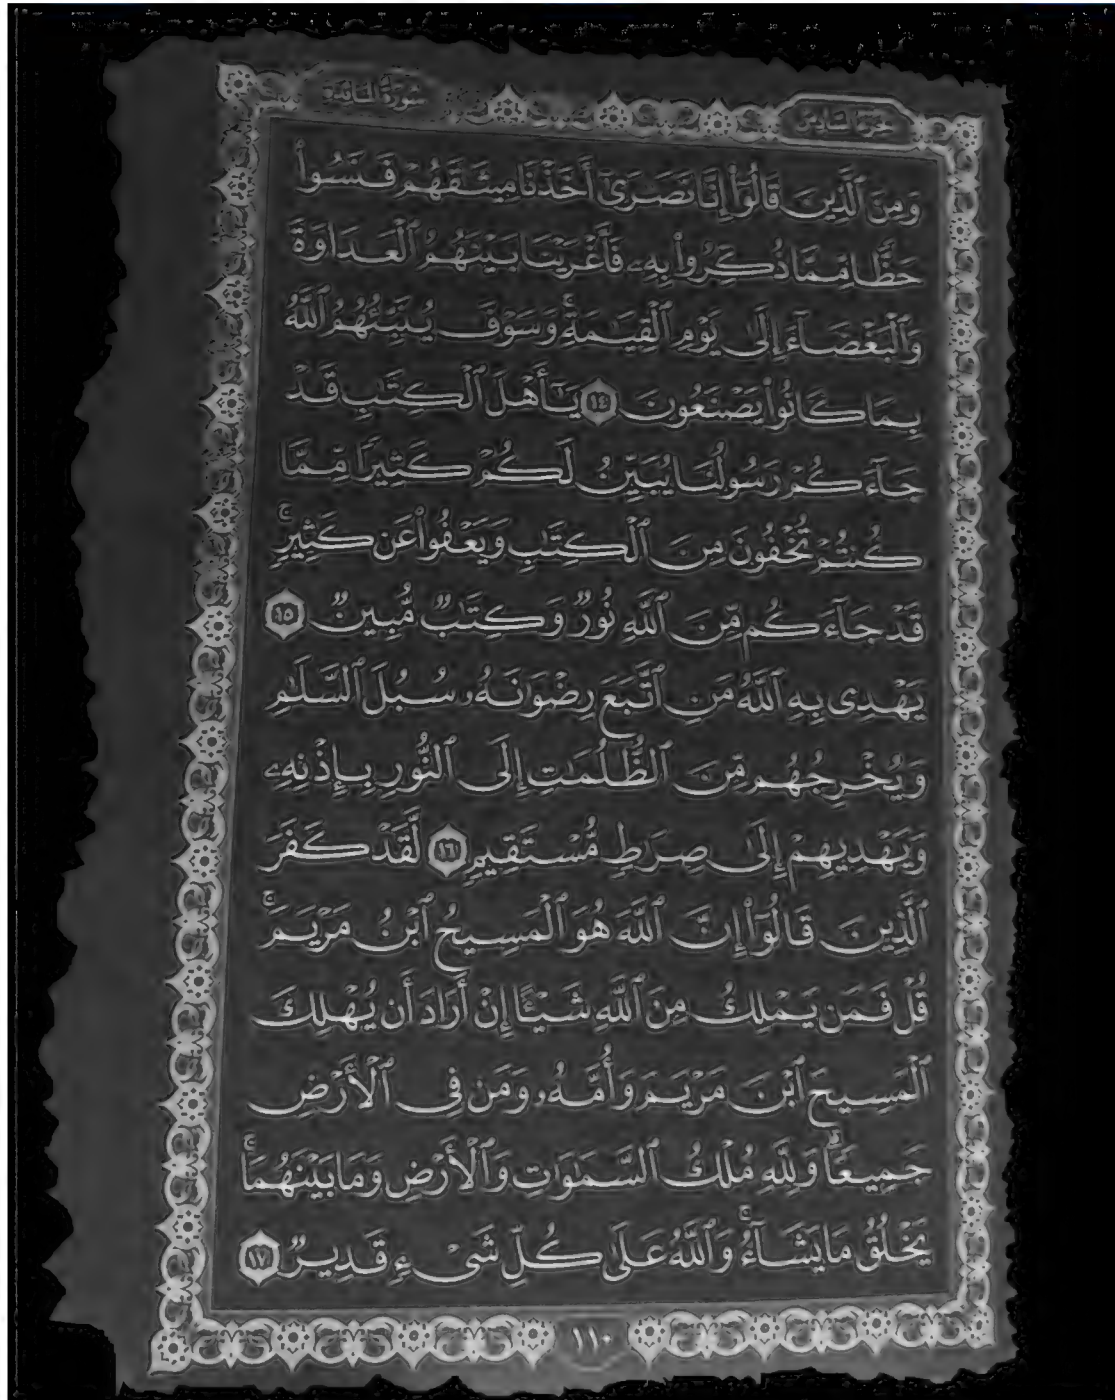 سُورَةُ المَائِدَةِ
الجُزْءُ السَّادِسُ
وَمِنَ ٱلَّذِينَ قَالُوٓاْ إِنَّا نَصَٰرَىٰٓ أَخَذْنَا مِيثَٰقَهُمْ فَنَسُواْ
حَظًّا مِّمَّا ذُكِّرُواْ بِهِۦ فَأَغْرَيْنَا بَيْنَهُمُ ٱلْعَدَاوَةَ
وَٱلْبَغْضَآءَ إِلَىٰ يَوْمِ ٱلْقِيَٰمَةِۚ وَسَوْفَ يُنَبِّئُهُمُ ٱللَّهُ
بِمَا كَانُواْ يَصْنَعُونَ ١٤ يَٰٓأَهْلَ ٱلْكِتَٰبِ قَدْ
جَآءَكُمْ رَسُولُنَا يُبَيِّنُ لَكُمْ كَثِيرًا مِّمَّا
كُنتُمْ تُخْفُونَ مِنَ ٱلْكِتَٰبِ وَيَعْفُواْ عَن كَثِيرٍۚ
قَدْ جَآءَكُم مِّنَ ٱللَّهِ نُورٌ وَكِتَٰبٌ مُّبِينٌ ١٥
يَهْدِى بِهِ ٱللَّهُ مَنِ ٱتَّبَعَ رِضْوَٰنَهُۥ سُبُلَ ٱلسَّلَٰمِ
وَيُخْرِجُهُم مِّنَ ٱلظُّلُمَٰتِ إِلَى ٱلنُّورِ بِإِذْنِهِۦ
وَيَهْدِيهِمْ إِلَىٰ صِرَٰطٍ مُّسْتَقِيمٍ ١٦ لَّقَدْ كَفَرَ
ٱلَّذِينَ قَالُوٓاْ إِنَّ ٱللَّهَ هُوَ ٱلْمَسِيحُ ٱبْنُ مَرْيَمَۚ
قُلْ فَمَن يَمْلِكُ مِنَ ٱللَّهِ شَيْـًٔا إِنْ أَرَادَ أَن يُهْلِكَ
ٱلْمَسِيحَ ٱبْنَ مَرْيَمَ وَأُمَّهُۥ وَمَن فِى ٱلْأَرْضِ
جَمِيعًاۗ وَلِلَّهِ مُلْكُ ٱلسَّمَٰوَٰتِ وَٱلْأَرْضِ وَمَا بَيْنَهُمَاۚ
يَخْلُقُ مَا يَشَآءُۚ وَٱللَّهُ عَلَىٰ كُلِّ شَىْءٍ قَدِيرٌ ١٧
١١٠